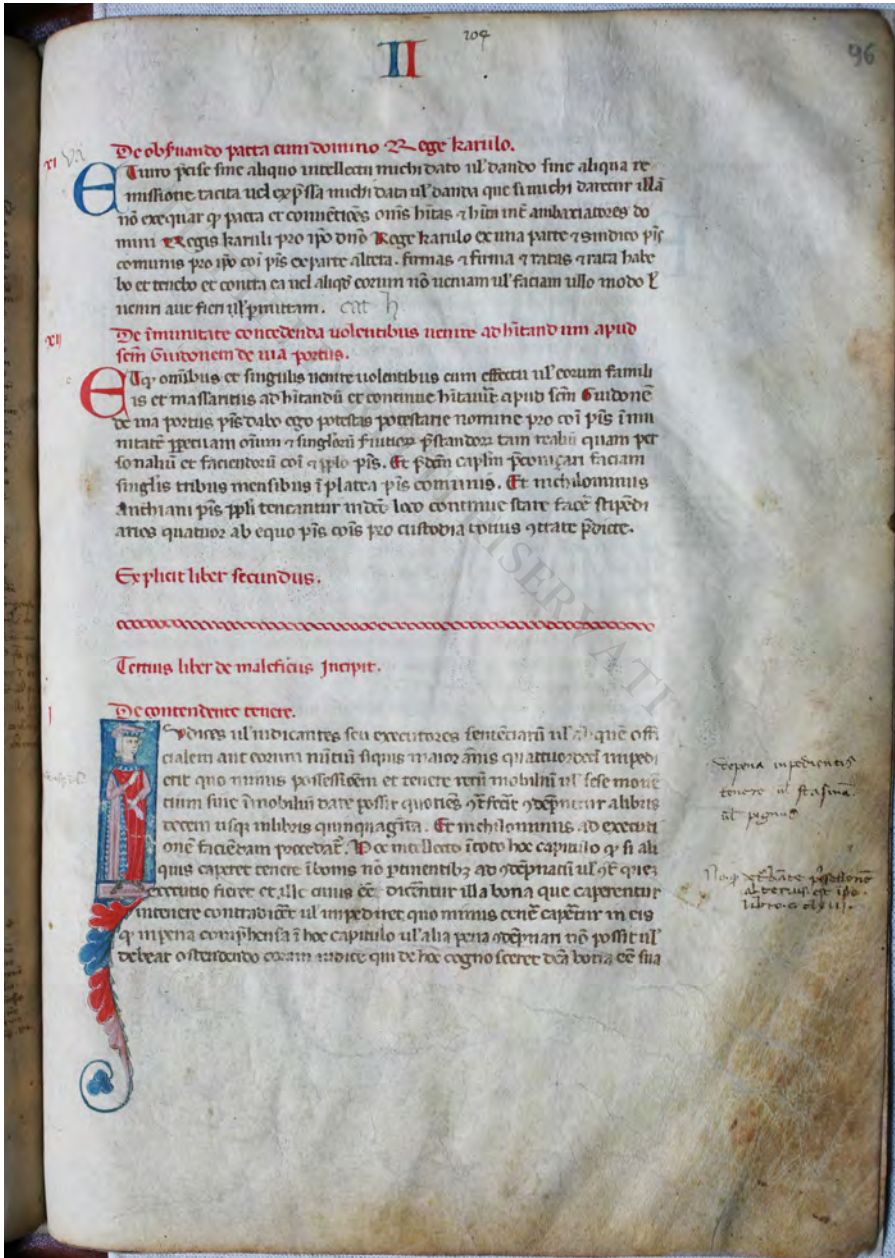 104
II
96
De obſuando pacta cum domino Rege karulo.
xi
ET iuro p̄cise sine aliquo intellectu michi dato ul' dando sine aliqua re
missione tacita uel exp̄ssa michi data ul' danda que si michi daretur illā
nō exequar q̄ pacta et conuētiōēs om̄s h̄itas ⁊ h̄ita int̄ ambaxiatores do
mini Regis karuli pro ip̄o dn̄o Rege karulo ex una parte ⁊ sindico pis̄
comunis pro ip̄o coī pis̄ ex parte altera. firmas ⁊ firma ⁊ ratas ⁊ rata habe
bo et tenebo et contra ea uel aliq̄d eorum nō ueniam ul' faciam ullo modo ł
ueniri aut fieri ul' p̄mittam.
xii
De īmunitate concedenda uolentibus uenire ad h̄itandum apud
scm̄ Guidonem de uia portus.
ET q̄ om̄ibus et singulis uenire uolentibus cum effectu ul' eorum famili
is et massaritiis ad h̄itandū et continue h̄itauīt apud scm̄ Guidonē
de uia portus pis̄ dabo ego potestas potestarie nomine pro coī pis̄ īmu
nitatē ꝑpetuam oīum ⁊ singlōrū s̄uitioꝝ p̄standoꝝ tam realiū quam per
sonaliū et faciendorū coī ⁊ pplo pis̄. Et p̄dcm̄ caplm̄ p̄coniçari faciam
singlis tribus mensibus ī platea pis̄ comunis. Et nichilominus
Anthiani pis̄ ppli teneantur in dco̅ loco continue stare facē stipēdi
arios quatuor ab equo pis̄ cōis pro custodia totius ꝯtrate p̄dicte.
Explicit liber secundus.
Tertius liber de maleficiis Incipit.
I
De contendente tenere.
IUdices ul' iudicantes seu executores sentēciarū ul' aliquē offi
cialem aut eorum nūtiū siquis maior ānis quattuordecī impedi
erit quo minus possessiōem et tenere rerū mobiliū ul' sese mouē
tium siue īmobiliū dare possit quotiēs ꝯt̄fec̄it ꝯdēpnetur a libris
decem usq̨ in libris quinquagīta. Et nichilominus ad executi
onē faciendam procedat̄. Hoc intellecto ī toto hoc capitulo q̄ si ali
quis caperet tenere ī bonis nō ꝑtinentibꝫ ad ꝯdēpnatū ul' ꝯt̄ quēꝫ
executio fieret et ille cuius eē dicentur illa bona que caperentur
in tenere contradicēt ul' impediret quo minus tenē capētur in eis
q̄ in pena comp̄hensa ī hoc capitulo ul' alia pena ꝯdēpnari nō possit ul'
debeat ostendendo coram iudice qui de hoc cognosceret dc̄a bona eē sua
de pena inpedientis
tenere ul' stasinā
ul' pignus